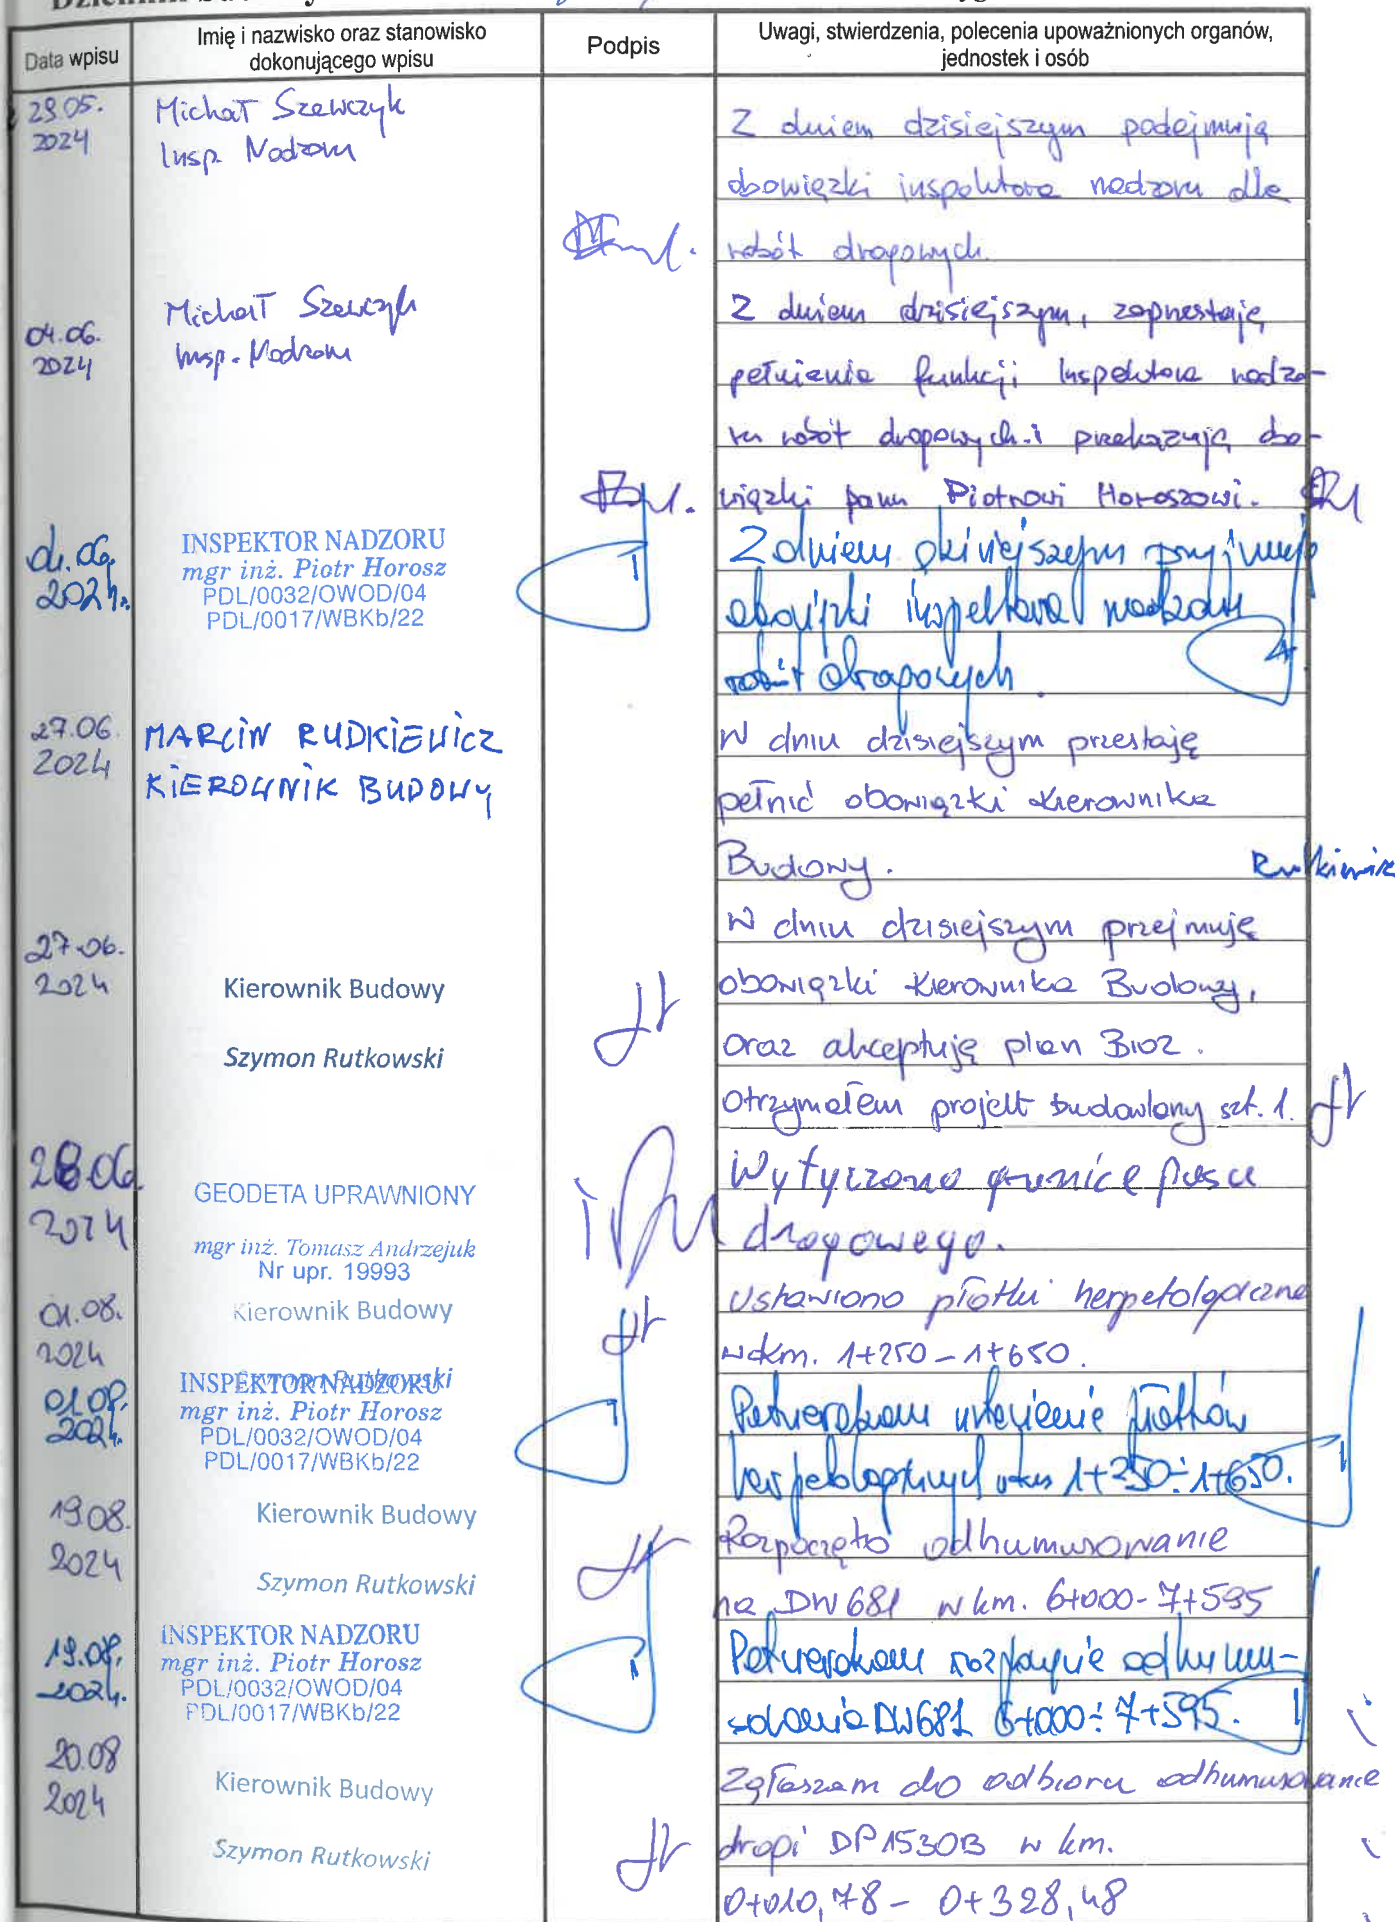 Data wpisu
Imię i nazwisko oraz stanowisko
dokonującego wpisu
Podpis
Uwagi, stwierdzenia, polecenia upoważnionych organów,
jednostek i osób
29.05.
2024
Michał Szewczyk
Insp. Nadzoru
Z dniem dzisiejszym podejmuję
obowiązki inspektora nadzoru dla
robót drogowych.
04.06.
2024
Michał Szewczyk
Insp. Nadzoru
Z dniem dzisiejszym, zaprzestaję
pełnienia funkcji Inspektora nadzo-
ru robót drogowych i przekazuję obo-
wiązki panu Piotrowi Horoszowi.
06.
2024r.
INSPEKTOR NADZORU
mgr inż. Piotr Horosz
PDL/0032/OWOD/04
PDL/0017/WBKb/22
Z dniem dzisiejszym przyjmuję
obowiązki inspektora nadzoru
robót drogowych.
27.06.
2024
MARCIN RUDKIEWICZ
KIEROWNIK BUDOWY
W dniu dzisiejszym przestaję
pełnić obowiązki Kierownika
Budowy.
27.06.
2024
Kierownik Budowy
Szymon Rutkowski
W dniu dzisiejszym przejmuję
obowiązki Kierownika Budowy,
oraz akceptuję plan BIOZ.
Otrzymałem projekt budowlany szt. 1.
28.06.
2024
GEODETA UPRAWNIONY
mgr inż. Tomasz Andrzejuk
Nr upr. 19993
Wytyczono granice pasa
drogowego.
01.08.
2024
Kierownik Budowy
Rutkowski
Ustawiono płotki herpetologiczne
w km. 1+250 - 1+650.
01.08.
2024.
INSPEKTOR NADZORU
mgr inż. Piotr Horosz
PDL/0032/OWOD/04
PDL/0017/WBKb/22
Potwierdzam ustawienie płotków
herpetologicznych w km 1+250÷1+650.
19.08.
2024
Kierownik Budowy
Szymon Rutkowski
Rozpoczęto odhumusowanie
na DW 681 w km. 6+000-7+595
19.08.
2024.
INSPEKTOR NADZORU
mgr inż. Piotr Horosz
PDL/0032/OWOD/04
PDL/0017/WBKb/22
Potwierdzam rozpoczęcie odhumu-
sowania DW681 6+000÷7+595.
20.08
2024
Kierownik Budowy
Szymon Rutkowski
Zgłaszam do odbioru odhumusowanie
drogi DP1530B w km.
0+010,78 - 0+328,48